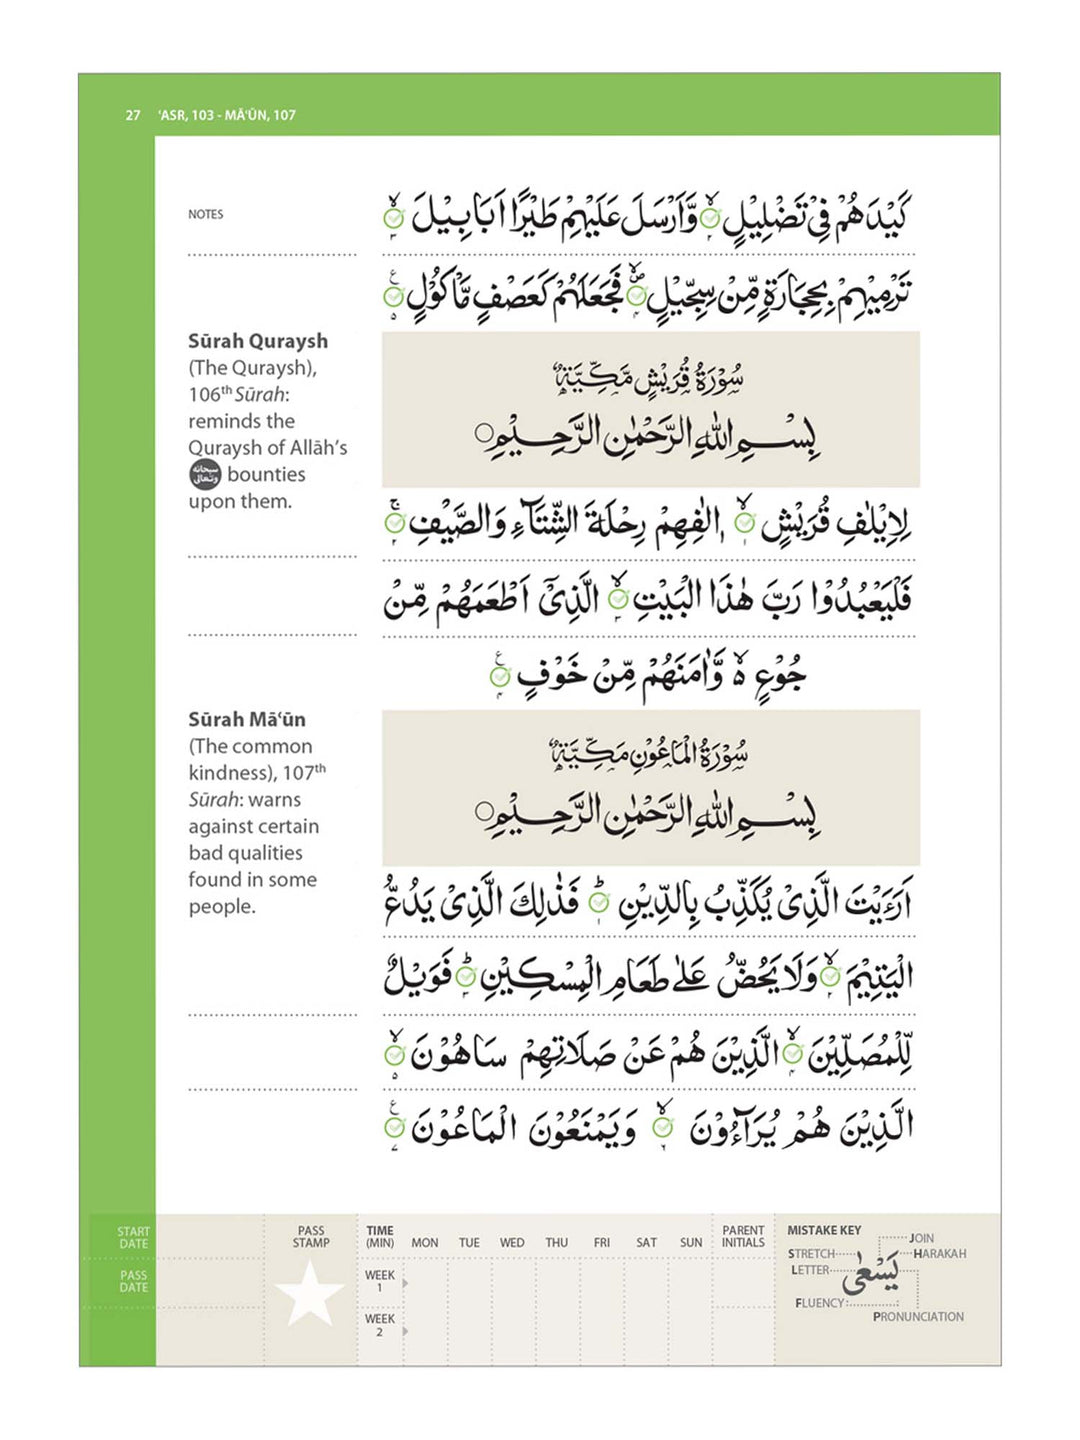 27 ʻASR, 103 - MĀʻŪN, 107
NOTES
كَيْدَهُمْ فِيْ تَضْلِيْلٍ ۙ۲ وَّاَرْسَلَ عَلَيْهِمْ طَيْرًا اَبَابِيْلَ ۙ۳
تَرْمِيْهِمْ بِحِجَارَةٍ مِّنْ سِجِّيْلٍ ۙ۴ فَجَعَلَهُمْ كَعَصْفٍ مَّاْكُوْلٍ ۵
Sūrah Quraysh
(The Quraysh),
106th Sūrah:
reminds the
Quraysh of Allāh’s
سبحانه وتعالى bounties
upon them.
سُوْرَةُ قُرَيْشٍ مَّكِّيَّةٌ
بِسْمِ اللّٰهِ الرَّحْمٰنِ الرَّحِيْمِ
لِاِيْلٰفِ قُرَيْشٍ ۙ۱ اٖلٰفِهِمْ رِحْلَةَ الشِّتَآءِ وَالصَّيْفِ ۚ۲
فَلْيَعْبُدُوْا رَبَّ هٰذَا الْبَيْتِ ۙ۳ الَّذِيْٓ اَطْعَمَهُمْ مِّنْ
جُوْعٍ ۙ۬ وَّاٰمَنَهُمْ مِّنْ خَوْفٍ ۴
Sūrah Māʻūn
(The common
kindness), 107th
Sūrah: warns
against certain
bad qualities
found in some
people.
سُوْرَةُ الْمَاعُوْنِ مَكِّيَّةٌ
بِسْمِ اللّٰهِ الرَّحْمٰنِ الرَّحِيْمِ
اَرَءَيْتَ الَّذِيْ يُكَذِّبُ بِالدِّيْنِ ؕ۱ فَذٰلِكَ الَّذِيْ يَدُعُّ
الْيَتِيْمَ ۙ۲ وَلَا يَحُضُّ عَلٰى طَعَامِ الْمِسْكِيْنِ ؕ۳ فَوَيْلٌ
لِّلْمُصَلِّيْنَ ۙ۴ الَّذِيْنَ هُمْ عَنْ صَلَاتِهِمْ سَاهُوْنَ ۙ۵
الَّذِيْنَ هُمْ يُرَآءُوْنَ ۙ۶ وَيَمْنَعُوْنَ الْمَاعُوْنَ ۷
START DATE
PASS DATE
PASS STAMP
TIME (MIN) MON TUE WED THU FRI SAT SUN PARENT INITIALS
WEEK 1
WEEK 2
MISTAKE KEY
JOIN
STRETCH
HARAKAH
LETTER
يَسْعٰى
FLUENCY
PRONUNCIATION